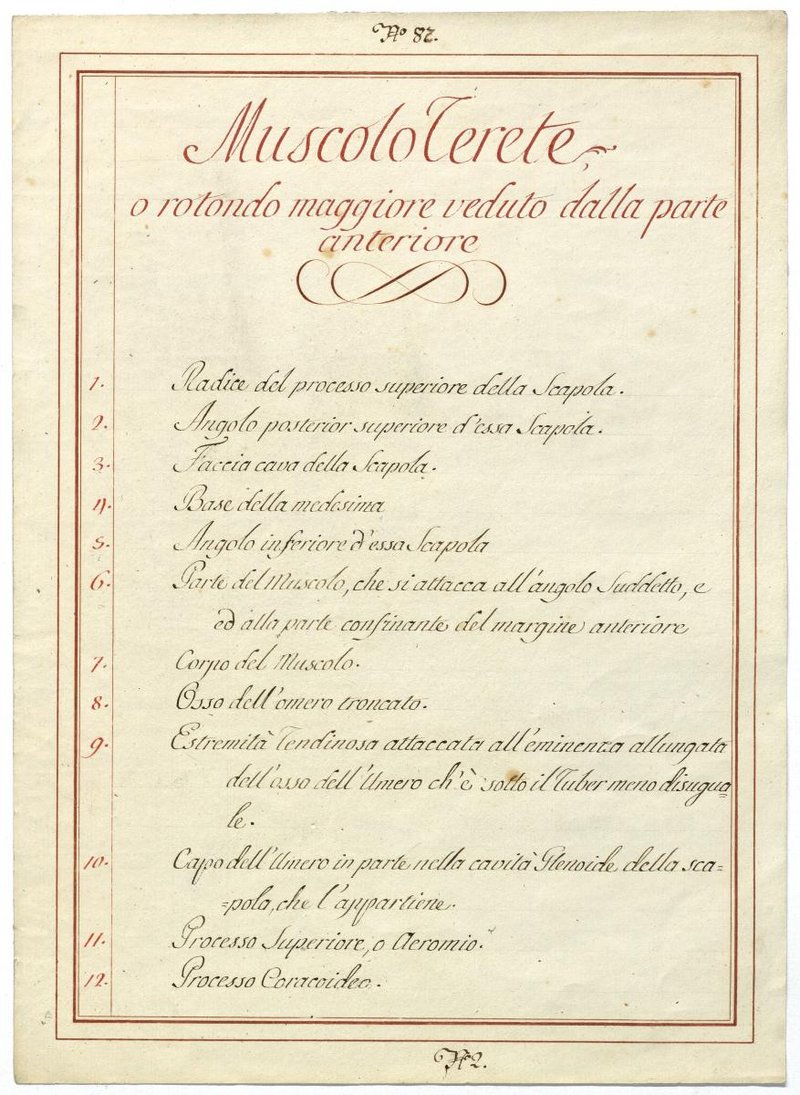 No 82.
Muscolo Terete,
o rotondo maggiore veduto dalla parte
anteriore
1. Radice del processo superiore della Scapola.
2. Angolo posterior superiore d'essa Scapola.
3. Faccia cava della Scapola.
4. Base della medesima
5. Angolo inferiore d'essa Scapola
6. Parte del Muscolo, che si attacca all'angolo Suddetto, e
ed alla parte confinante del margine anteriore
7. Corpo del Muscolo.
8. Osso dell'omero troncato.
9. Estremità Tendinosa attaccata all'eminenza allungata
dell'osso dell'Umero ch'è sotto il Tuber meno disugua=
le.
10. Capo dell'Umero in parte nella cavità Glenoide della sca=
=pola, che l'appartiene.
11. Processo Superiore, o Acromio.
12. Processo Coracoideo.
No 2.